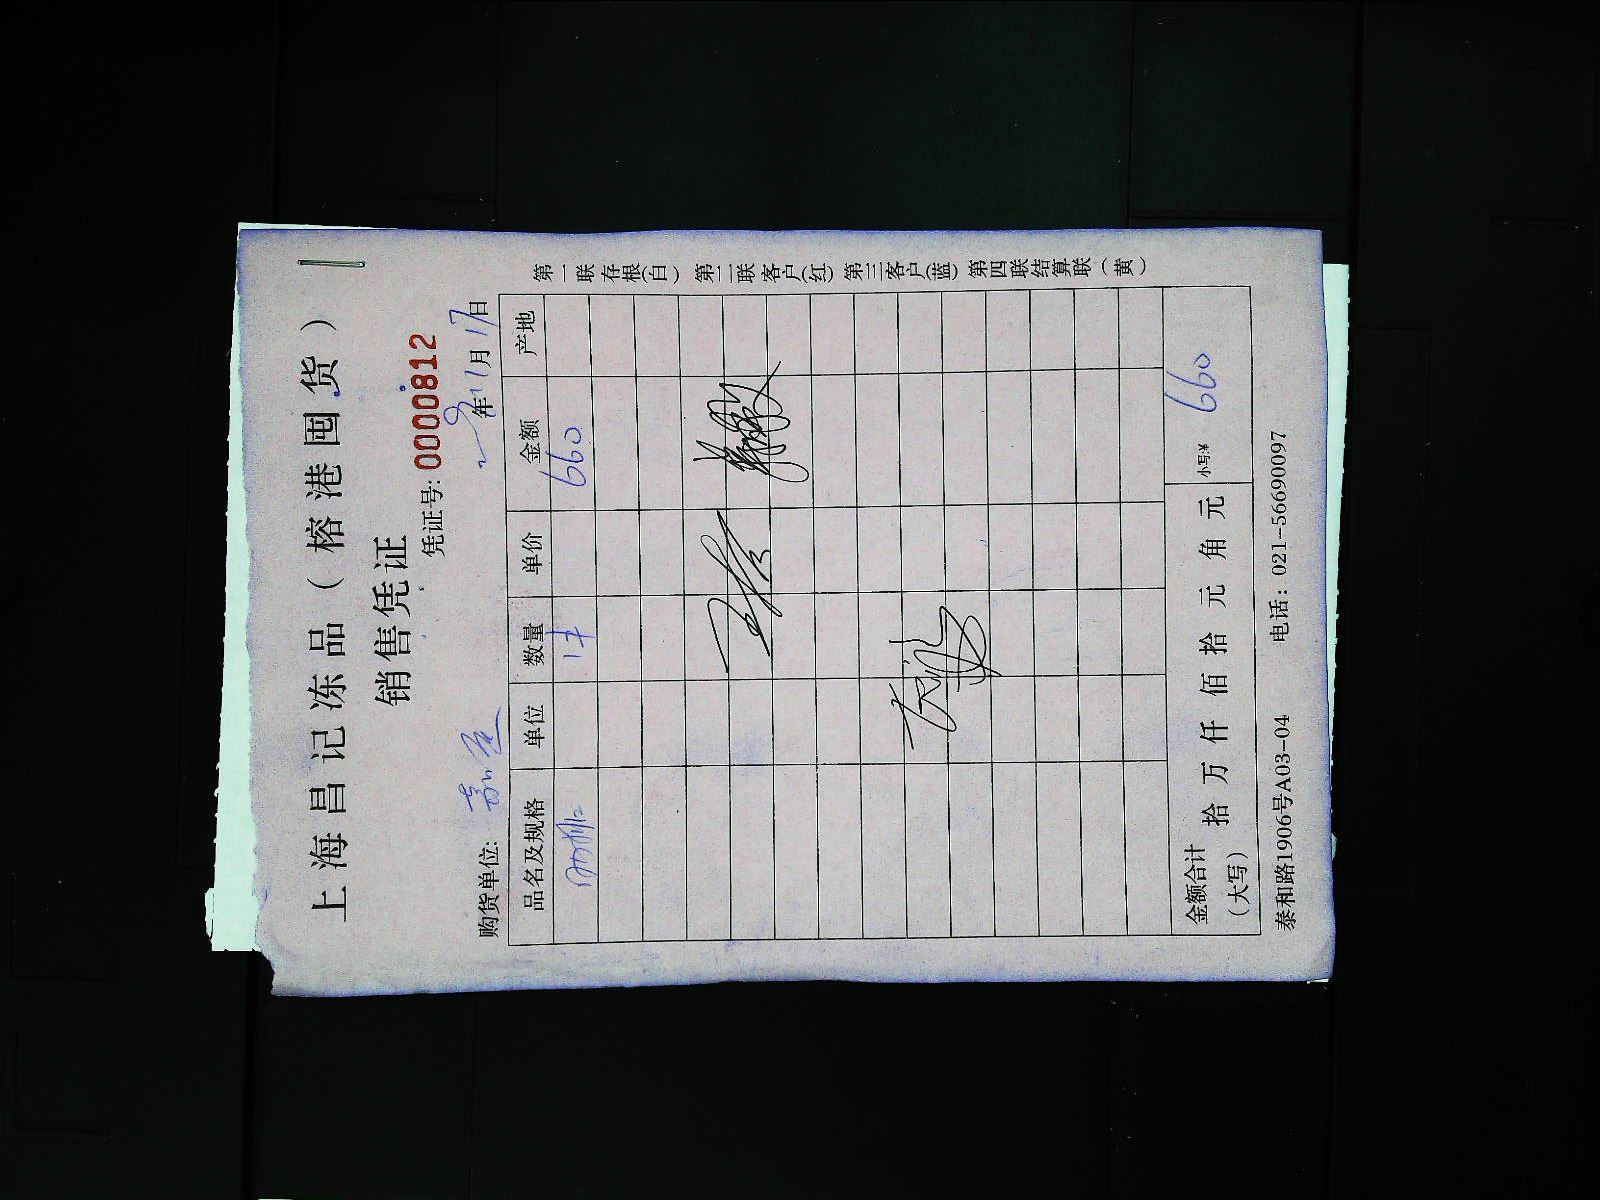 上海昌记冻品（榕港囤货）
销售凭证
凭证号: 0000812
年11月17日
购货单位:
品名及规格 单位 数量 单价 金额 产地
1件 660
金额合计（大写） 拾 万 仟 佰 拾 元 角 元 小写:¥ 660
泰和路1906号A03-04 电话: 021-56690097
第一联 存根(白) 第二联 客户(红) 第三客户(蓝) 第四联结算联（黄）